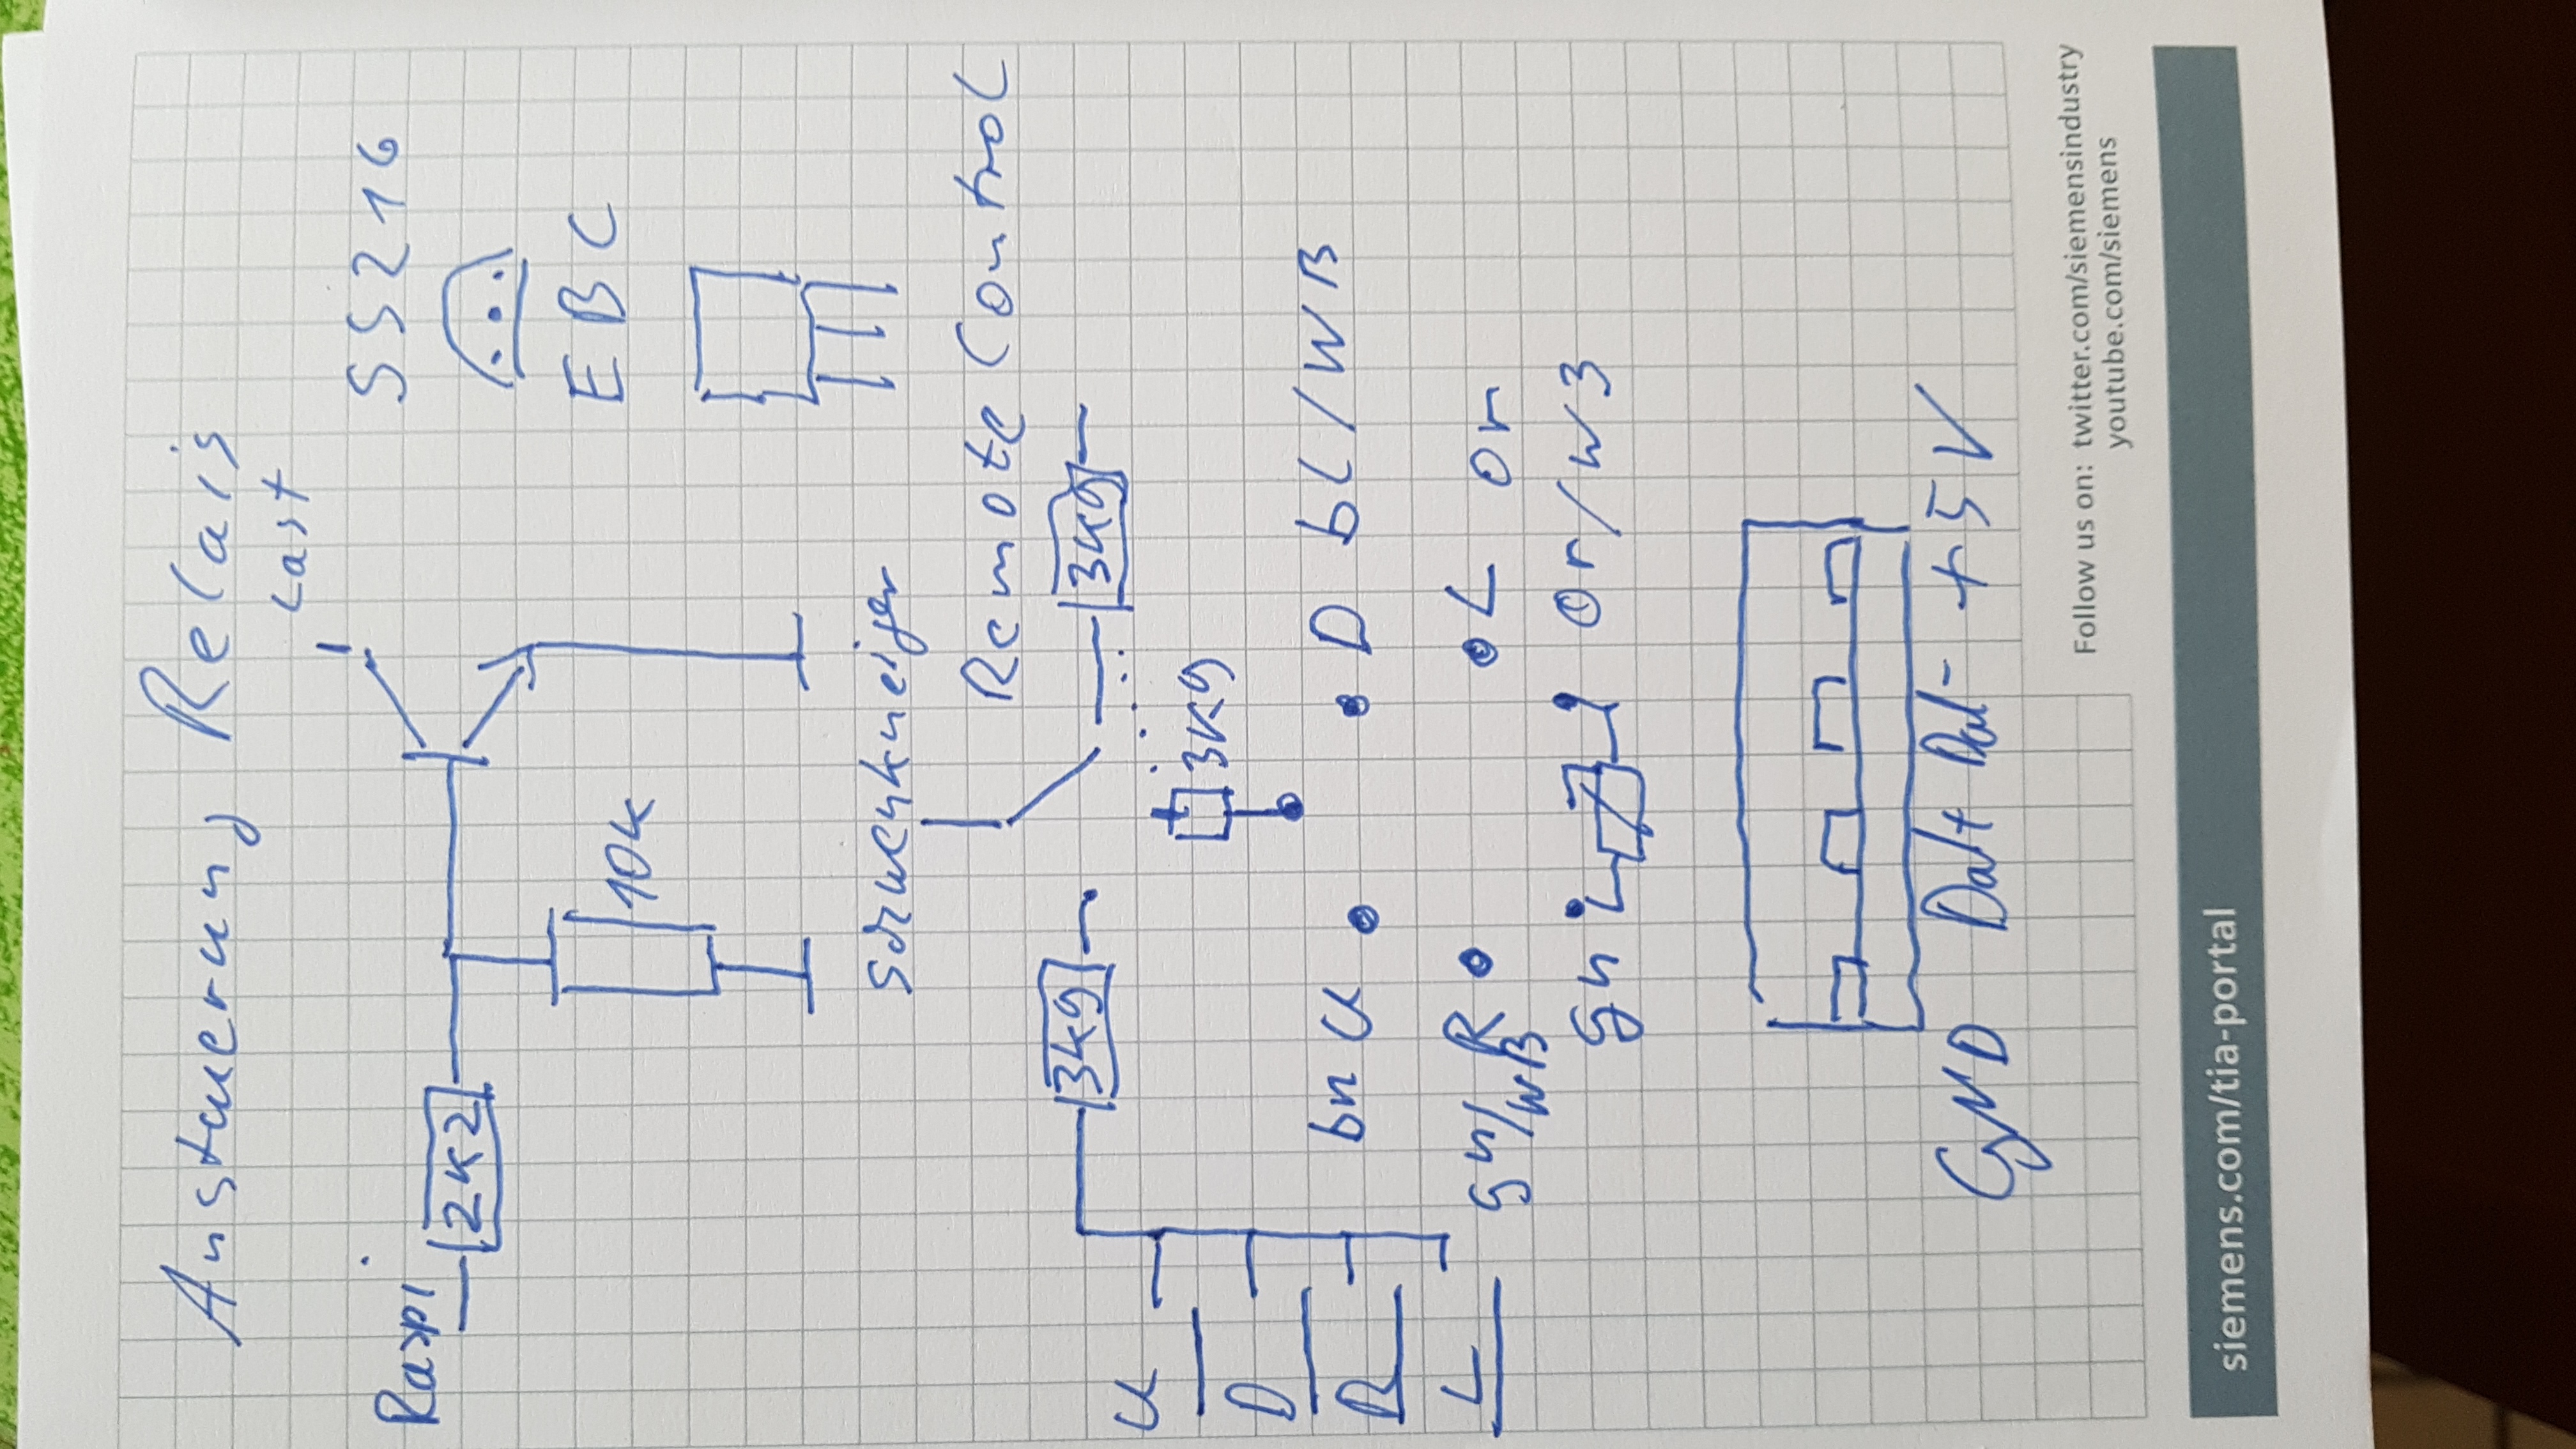 Ansteuerung Relais
Last
Raspi
2k2
SS216
10k
E B C
Schwenkneiger
Remote Control
3k9
3k9
U
3k9
D
bn U
D bl/WB
R
L
gn/WB R
L or
gn
Or/WB
GND Dat+ Dat- +5V
Follow us on: twitter.com/siemensindustry
youtube.com/siemens
siemens.com/tia-portal